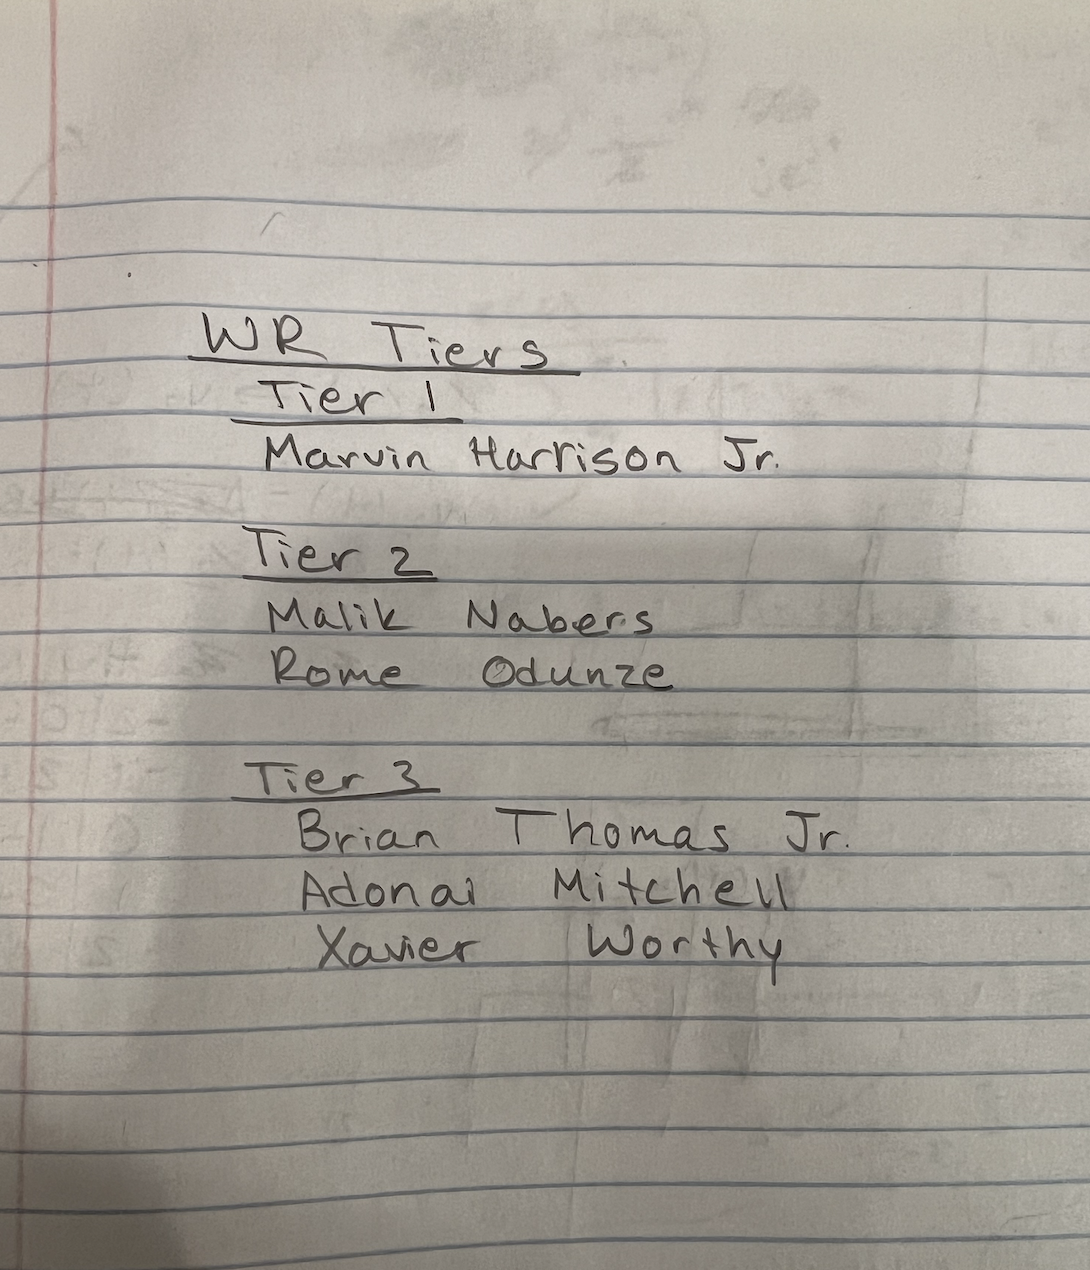 WR Tiers
Tier 1
Marvin Harrison Jr.
Tier 2
Malik Nabers
Rome Odunze
Tier 3
Brian Thomas Jr.
Adonai Mitchell
Xavier Worthy